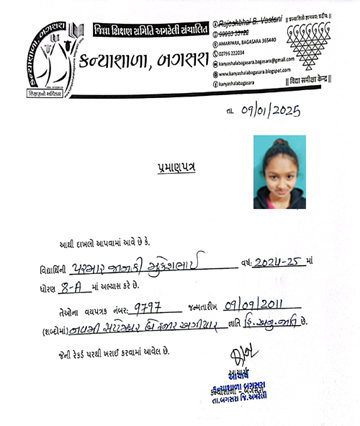 જિલ્લા શિક્ષણ સમિતિ અમરેલી સંચાલિત
કન્યાશાળા, બગસરા
Rajeshbhai B. Vaslani
AMARPARA, BAGASARA 365440
02796 222034
kanyashalabagasara.bagasara@gmail.com
www.kanyashalabagasara.blogspot.com
kanyashalabagasara
|| વિદ્યા સમીક્ષા કેન્દ્ર ||
તા. 09/01/2025
પ્રમાણપત્ર
આથી દાખલો આપવામાં આવે છે કે,
વિદ્યાર્થિની પરમાર જાનકી મુકેશભાઈ વર્ષ: 2024-25 માં
ધોરણ 8-A માં અભ્યાસ કરે છે.
તેઓના વયપત્રક નંબર: 9797 જન્મતારીખ 09/09/2011
(શબ્દોમાં) નવમી સપ્ટેમ્બર બે હજાર અગીયાર જ્ઞાતિ હિ.અનુ.જાતિ છે.
જેની રેકર્ડ પરથી ખરાઈ કરવામાં આવેલ છે.
આચાર્ય
કન્યાશાળા બગસરા
તા.બગસરા જિ.અમરેલી